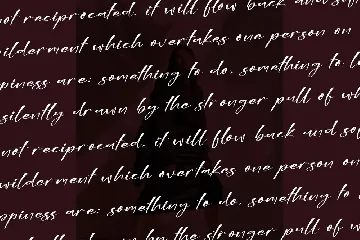 not reciprocated, it will flow back and sof
wilderment which overtakes one person on
ppiness are: something to do, something to l
silently drawn by the stronger pull of wh
not reciprocated, it will flow back and sof
wilderment which overtakes one person on
ppiness are: something to do, something to
silently drawn by the stronger pull of wh